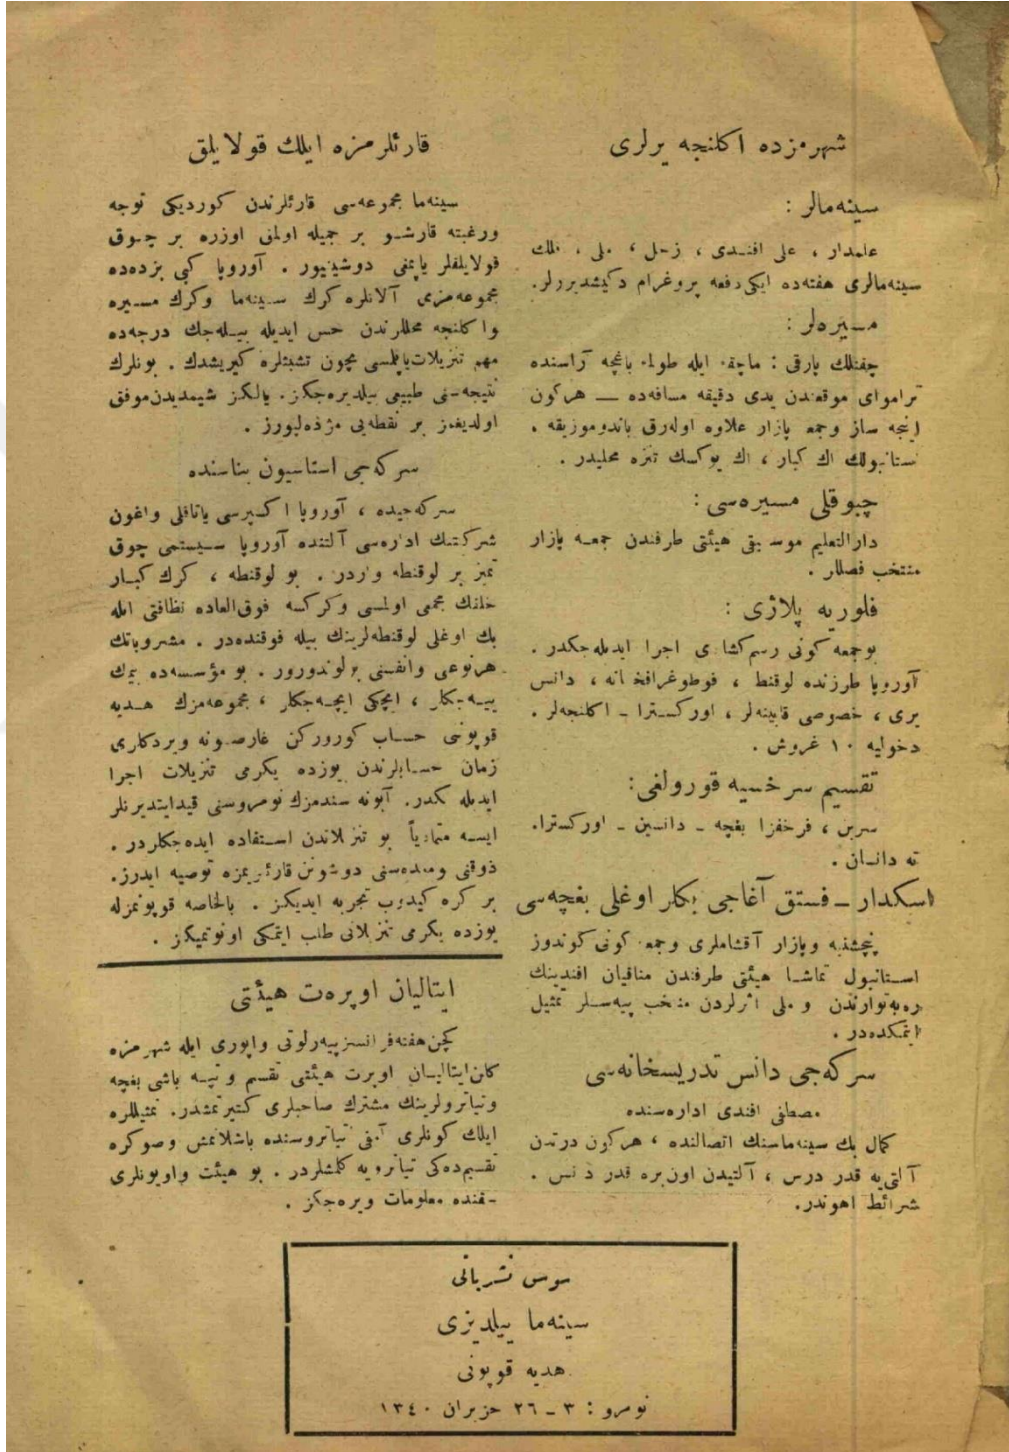 شهرمزده اكلنجه يرلری
سينه‌مالر :
علمدار ، علی افندی ، زحل ، ملی ، فلك
سينه‌مالری هفته‌ده ايكی دفعه پروغرام دكيشديررلر.
مسيره‌لر :
چفتلك پارقی : ماچقه ايله طولمه باغچه آراسنده
تراموای موقعندن يدی دقيقه مسافه‌ده — هركون
اينجه ساز وجمعه پازار علاوه اوله‌رق باندو موزيقه .
ستانبولك اك كبار ، اك يوكسك تنزه محليدر .
چبوقلی مسيره‌سی :
دارالتعليم موسيقی هيئتی طرفندن جمعه پازار
منتخب فصللر .
فلوريه پلاژی :
بوجمعه كونی رسم كشادی اجرا ايديله‌جكدر .
آوروپا طرزنده لوقنطه ، فوطوغرافخانه ، دانس
يری ، خصوصی قابينه‌لر ، اوركسترا ـ اكلنجه‌لر .
دخوليه ١٠ غروش .
تقسيم سرخسيه قورولغی :
سرين ، فرحفزا بغچه ـ دانسين ـ اوركسترا.
ته دانسان .
اسكدار ـ فستق آغاجی بكلر اوغلی بغچه‌سی
پنچشنبه وپازار آقشاملری وجمعه كونی كوندوز
استانبول تماشا هيئتی طرفندن مناقيان افندينك
ره‌په‌رتوارندن و ملی اثرلردن منتخب پيه‌سلر تمثيل
ايتمكده‌در .
سركه‌جی دانس تدريسخانه‌سی
مصطفی افندی اداره‌سنده
كمال بك سينه‌ماسنك اتصالنده ، هركون درتدن
آلتی‌يه قدر درس ، آلتيدن اون بره قدر دانس .
شرائط اهوندر.
قارئلرمزه ايلك قولايلق
سينه‌ما مجموعه‌سی قارئلرندن كورديكی توجه
ورغبته قارشو بر جميله اولمق اوزره بر چوق
قولايلقلر ياپمغی دوشينيور . آوروپا كبی بزده‌ده
مجموعه‌مزی آلانلره كرك سينه‌ما وكرك مسيره
واكلنجه محللرندن حس ايديله بيله‌جك درجه‌ده
مهم تنزيلات ياپلمسی ايچون تشبثلره كيريشدك . بونلرك
نتيجه‌سنی طبيعی بيلديره‌جكز. يالكز شيمديدن موفق
اولديغمز بر نقطه‌يی مژده‌ليورز .
سركه‌جی استاسيون بناسنده
سركه‌جيده ، آوروپا اكسپرسی ياتاقلی واغون
شركتنك اداره‌سی آلتنده آوروپا سيستمی چوق
تميز بر لوقنطه واردر . بو لوقنطه ، كرك كبار
خلقك مجمعی اولمسی وكركسه فوق‌العاده نظافتی ايله
بك اوغلی لوقنطه‌لرينك بيله فوقنده‌در . مشروباتك
هرنوعی وانفسنی بولوندورور . بو مؤسسه‌ده يمك
ييه‌جكلر ، ايچكی ايچه‌جكلر ، مجموعه‌مزك هديه
قوپوننی حساب كورورکن غارصونه ويردكلری
زمان حسابلرندن يوزده يكرمی تنزيلات اجرا
ايديله‌جكدر. آبونه سندمزك نومروسنی قيدايتديرنلر
ايسه متمادياً بو تنزيلاتدن استفاده ايده‌جكلردر .
ذوقنی ومعده‌سنی دوشونن قارئلريمزه توصيه ايدرز.
بر كره كيدوب تجربه ايديكز . بالخاصه قوپونمزله
يوزده يكرمی تنزيلاتی طلب ايتمكی اونوتميكز .
ايتاليان اوپره‌ت هيئتی
كچن هفته فرانسز پيه‌رلوتی واپوری ايله شهرمزه
كلن ايتاليان اوپرت هيئتی تقسيم و تپه باشی بغچه
وتياترولرينك مشترك صاحبلری كتيرتمشدر. تمثيللره
ايلك كونلری آمفی تياتروسنده باشلانمش وصوكره
تقسيمده‌كی تياترويه كلمشلردر . بو هيئت واويونلری
حقنده معلومات ويره‌جكز .
سوس نشرياتی
سينه‌ما ييلديزی
هديه قوپونی
نومرو : ٣ ـ ٢٦ حزيران ١٣٤٠